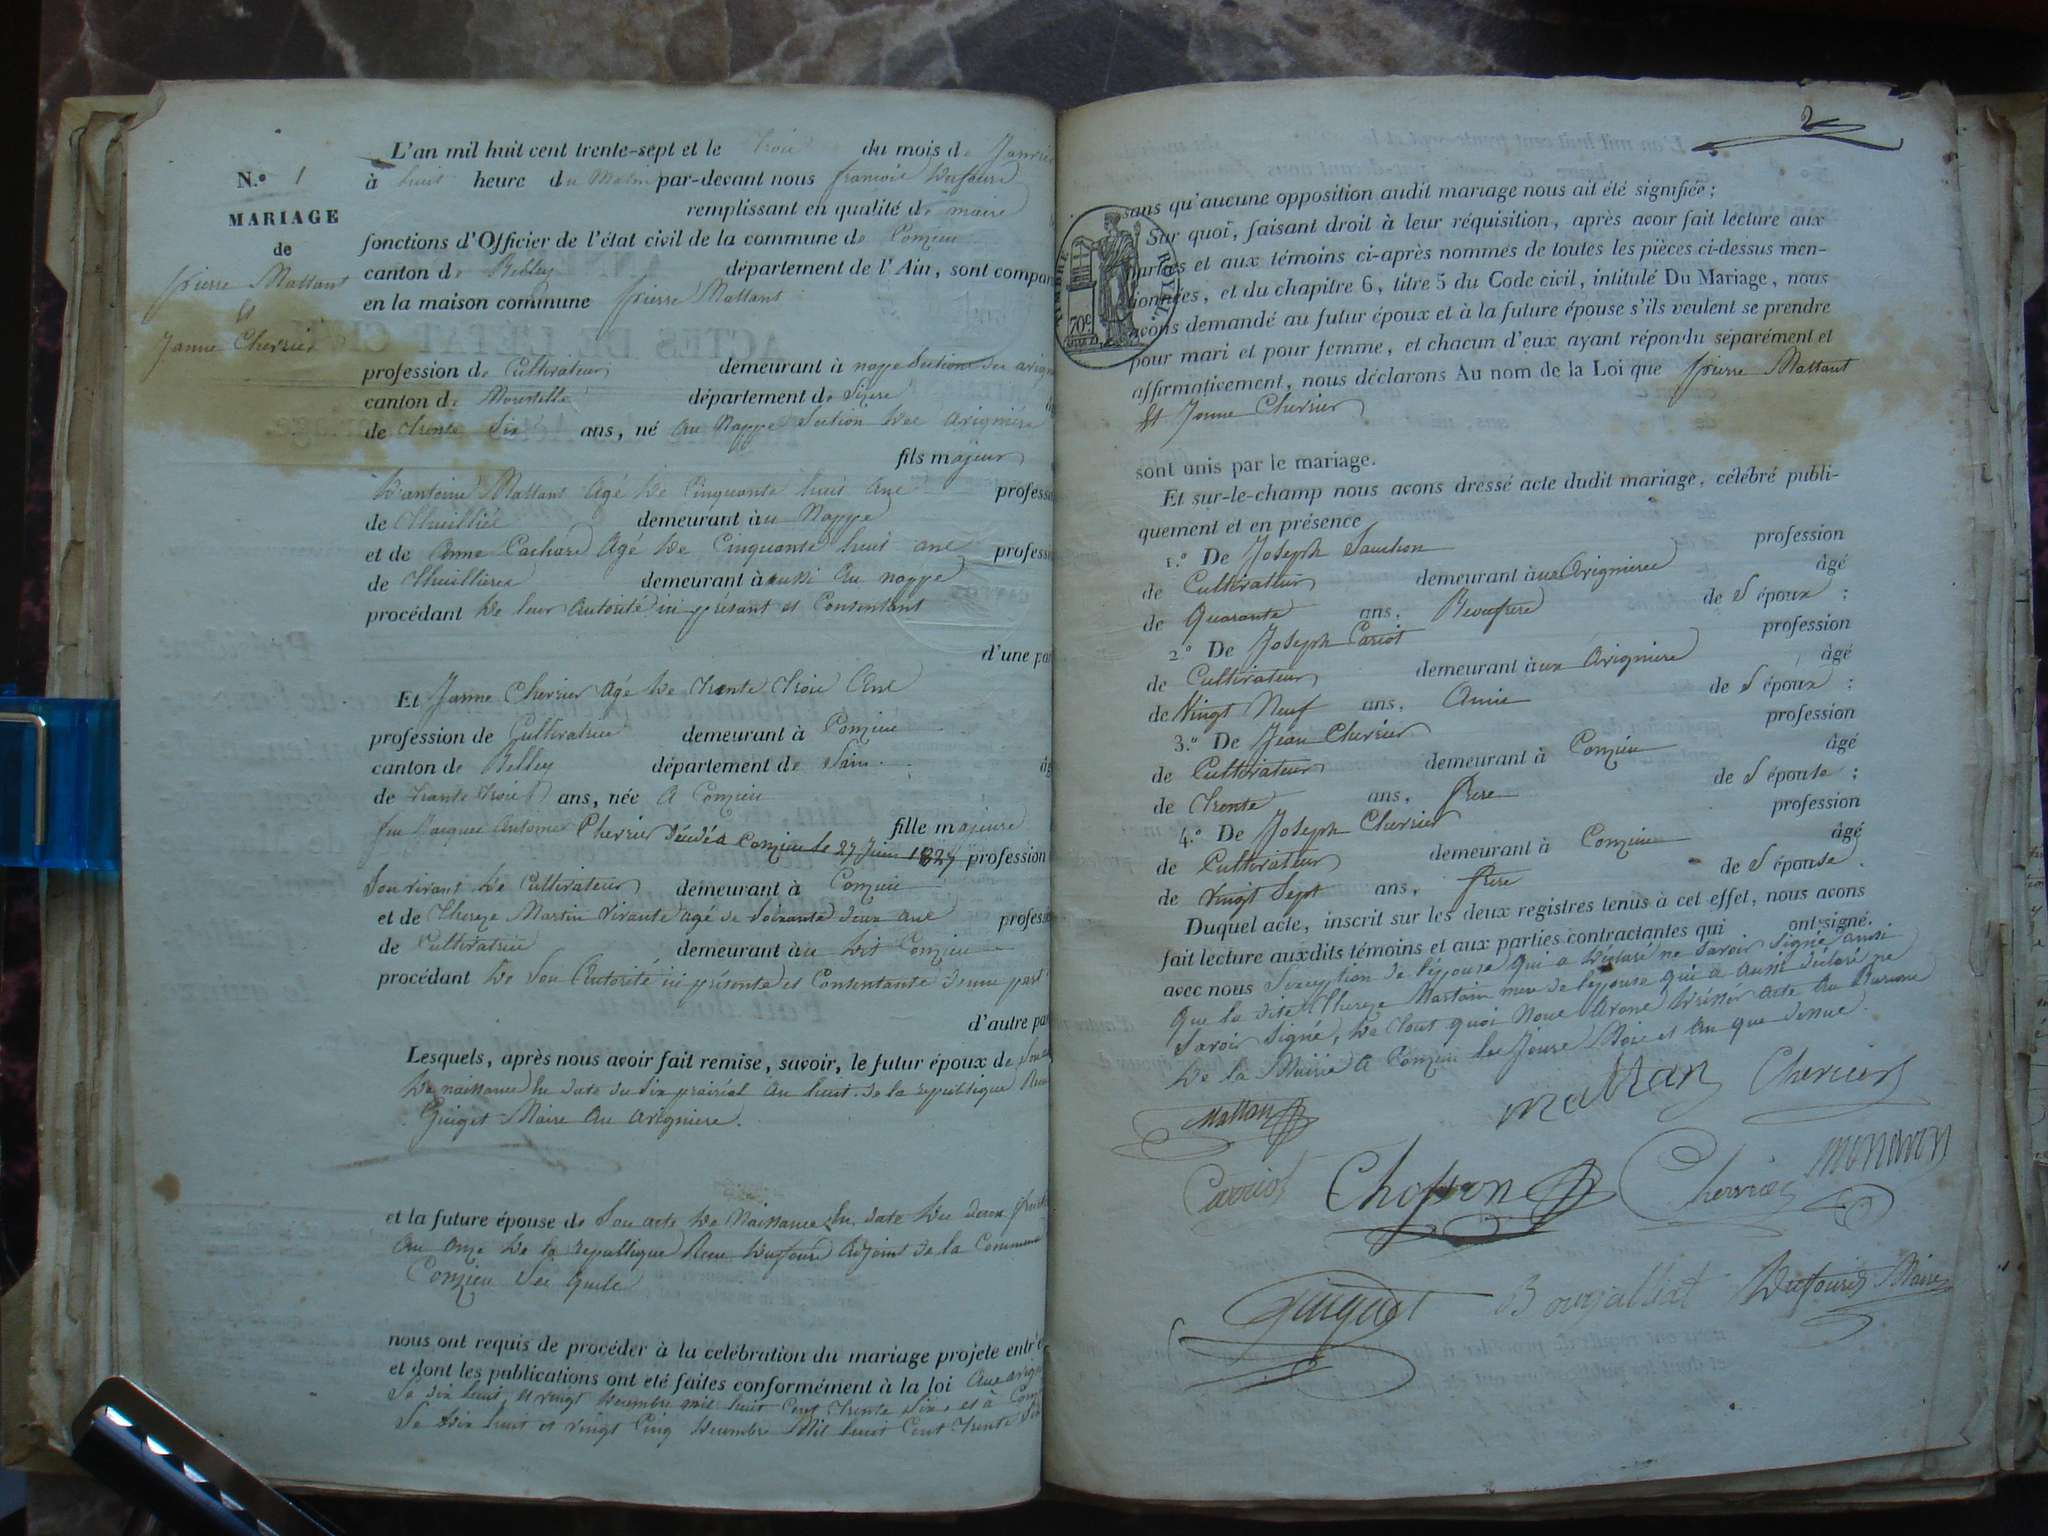 N.º 1
MARIAGE
de
pierre Mattant
et
Janne Cherrier
L'an mil huit cent trente-sept et le trois du mois de Janvier
à huit heure du Matin par-devant nous francois Dufour
remplissant en qualité de maire
fonctions d'Officier de l'état civil de la commune de Conzieu
canton de Belley département de l'Ain, sont compar
en la maison commune pierre Mattant
profession de Cultivateur demeurant à nappe Section des avign
canton de département de Sizere
de trente Six ans, né au Nappe Section des avigniere
fils majeur
D'antoine Mattant agé de Cinquante huit ans professi
de demeurant à u Nappe
et de anne Cachard agé de Cinquante huit ans professi
de demeurant à aussi au nappe
procédant de leur autorité ici présant et Consentant
d'une par
Et Janne Cherrier agé de trente trois ans
profession de Cultivatrice demeurant à Conzieu
canton de Belley département de Lain âg
de trante trois ans, née a Conzieu
fille majeure
feu Jacques antome Cherrier décédé a Conzieu le 27 Juin 1827 profession
Son vivant de Cultivateur demeurant à Conzieu
et de Thereze Martin vivante agé de Soixante deux ans professi
de Cultivatrice demeurant à u dit Conzieu
procédant de Son autorité ici présente et Consentante d'une part
d'autre par
Lesquels, après nous avoir fait remise, savoir, le futur époux de Son
de naissance en date du Six prairial an huit de la republique
Guiget Maire au avigniere.
et la future épouse de Son acte de Naissance en date du deux
an onze de la republique Dufour adjoint de la Commune
Conzieu
nous ont requis de procéder à la célébration du mariage projeté entr'e
et dont les publications ont été faites conformément à la loi aux avign
Le dix huit et vingt decembre mil huit Cent trente Six et à Conz
Le dix huit et vingt Cinq decembre Mil huit Cent trente Six
2
TIMBRE ROYAL.
70c
sans qu'aucune opposition audit mariage nous ait été signifiée;
Sur quoi, faisant droit à leur réquisition, après avoir fait lecture aux
parties et aux témoins ci-après nommés de toutes les pièces ci-dessus men-
tionnées, et du chapitre 6, titre 5 du Code civil, intitulé Du Mariage, nous
avons demandé au futur époux et à la future épouse s'ils veulent se prendre
pour mari et pour femme, et chacun d'eux ayant répondu séparément et
affirmativement, nous déclarons Au nom de la Loi que pierre Mattant
Et Janne Cherrier
sont unis par le mariage.
Et sur-le-champ nous avons dressé acte dudit mariage, célébré publi-
quement et en présence
1.º De Joseph profession
de Cultivateur demeurant à ux avignieres âgé
de Quarante ans, Beaufrere de l'époux;
2.º De Joseph Cariot profession
de Cultivateur demeurant à ux avigniere âgé
de Vingt Neuf ans, amis de l'époux;
3.º De Jean Cherrier profession
de Cultivateur demeurant à Conzieu âgé
de trente ans, frere de l'épouse;
4.º De Joseph Cherrier profession
de Cultivateur demeurant à Conzieu âgé
de vingt Sept ans, frere de l'épouse.
Duquel acte, inscrit sur les deux registres tenus à cet effet, nous avons
fait lecture auxdits témoins et aux parties contractantes qui ont signé.
avec nous Sexeption de l'épouse qui a déclaré ne Savoir Signé ainsi
que la dite Thereze Martain mere de l'epouse qui a aussi déclaré ne
Savoir Signé, de tout quoi Nous avons dressér acte au Bureau
de la Mairie a Conzieu les Jours Mois et an que dessus.
Mattan
mattan Cherrier
Carriot Chosson Cherrier monavon
Guiguet Bourjaillat Dufour Maire